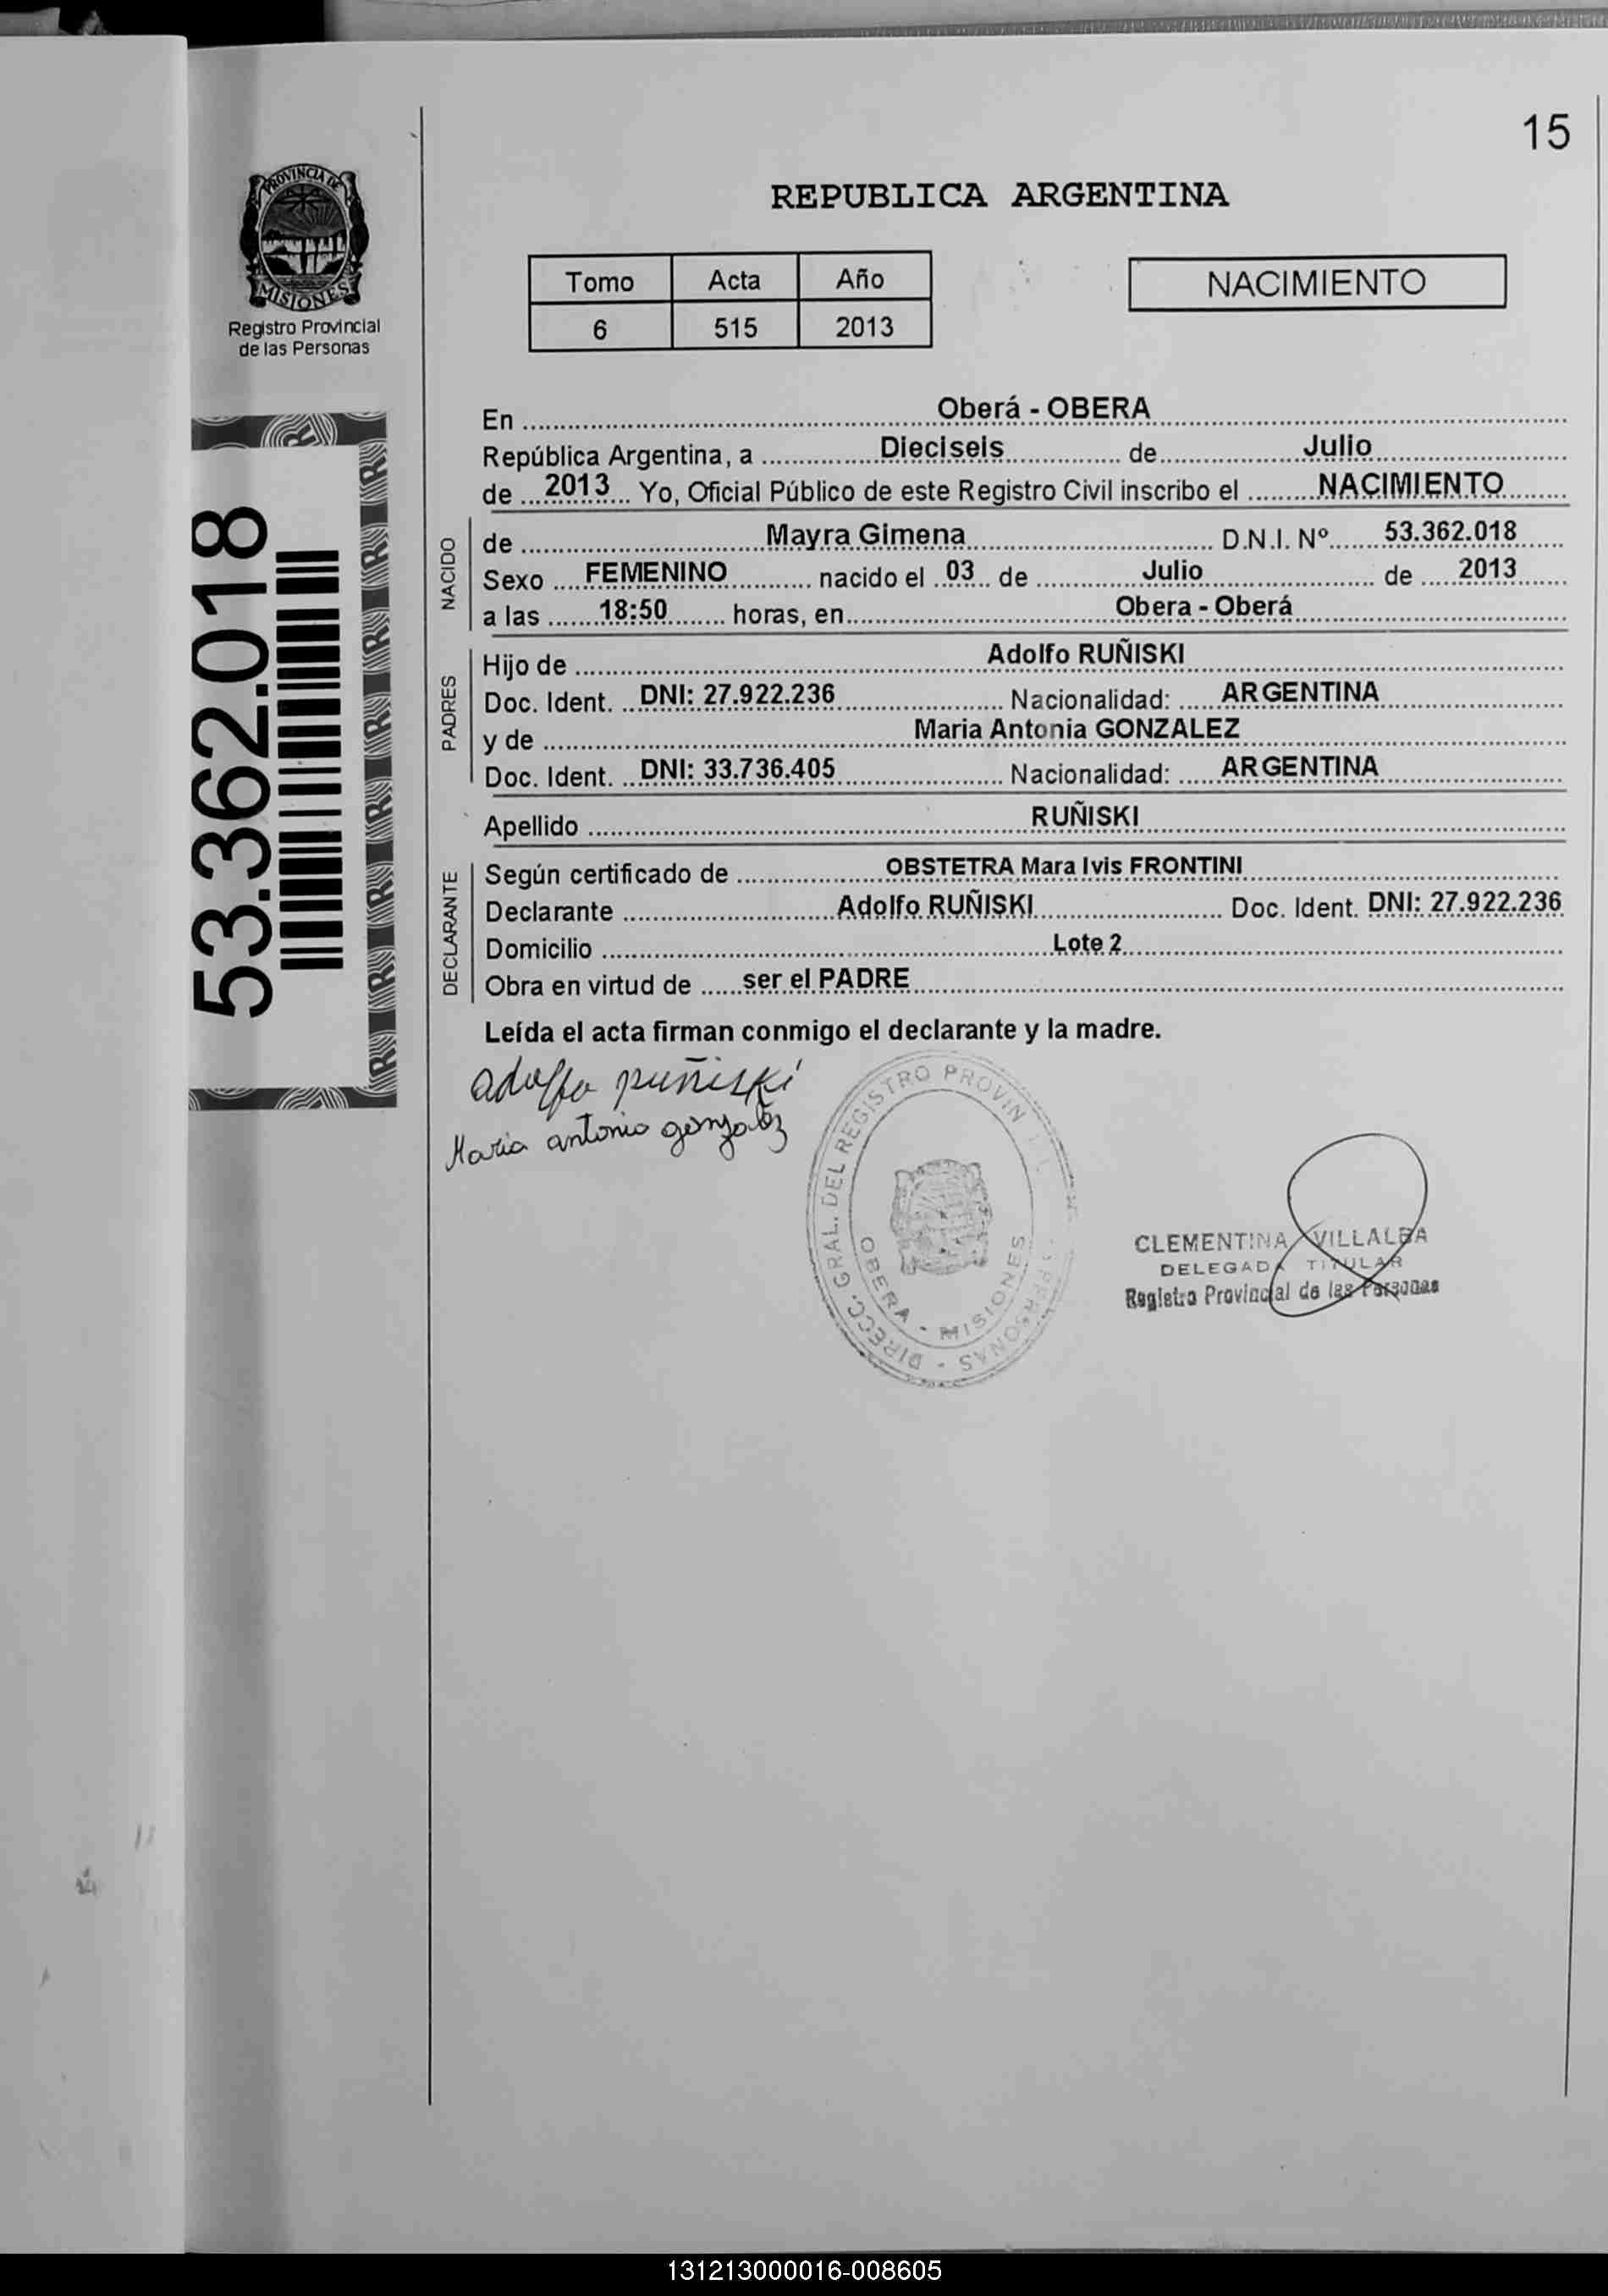 15
PROVINCIA DE
MISIONES
Registro Provincial
de las Personas
REPUBLICA ARGENTINA
Tomo Acta Año
6 515 2013
NACIMIENTO
53.362.018
En Oberá - OBERA
República Argentina, a Dieciseis de Julio
de 2013 Yo, Oficial Público de este Registro Civil inscribo el NACIMIENTO
NACIDO
de Mayra Gimena D.N.I. Nº 53.362.018
Sexo FEMENINO nacido el 03 de Julio de 2013
a las 18:50 horas, en Obera - Oberá
PADRES
Hijo de Adolfo RUÑISKI
Doc. Ident. DNI: 27.922.236 Nacionalidad: ARGENTINA
y de Maria Antonia GONZALEZ
Doc. Ident. DNI: 33.736.405 Nacionalidad: ARGENTINA
Apellido RUÑISKI
DECLARANTE
Según certificado de OBSTETRA Mara Ivis FRONTINI
Declarante Adolfo RUÑISKI Doc. Ident. DNI: 27.922.236
Domicilio Lote 2
Obra en virtud de ser el PADRE
Leída el acta firman conmigo el declarante y la madre.
adolfo ruñiski
Maria antonia gonzalez
DIRECC. GRAL. DEL REGISTRO PROVIN PERSONAS -
OBERA - MISIONES
CLEMENTINA VILLALBA
DELEGADA TITULAR
Registro Provincial de las Personas
131213000016-008605